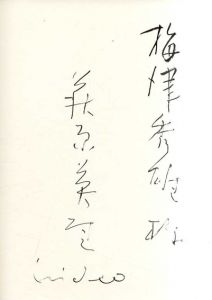 梅津秀雄様
萩原英雄
hideo